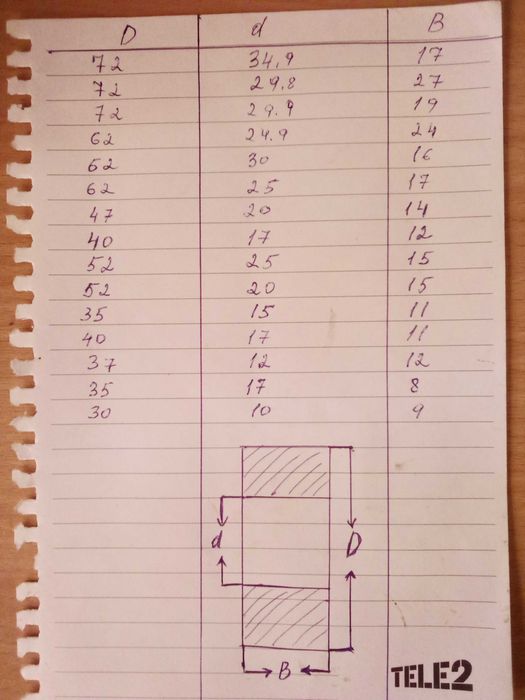 D d B
72 34,9 17
72 29,8 27
72 29,9 19
62 24,9 24
62 30 16
62 25 17
47 20 14
40 17 12
52 25 15
52 20 15
35 15 11
40 17 11
37 12 12
35 17 8
30 10 9
d D
B
TELE2